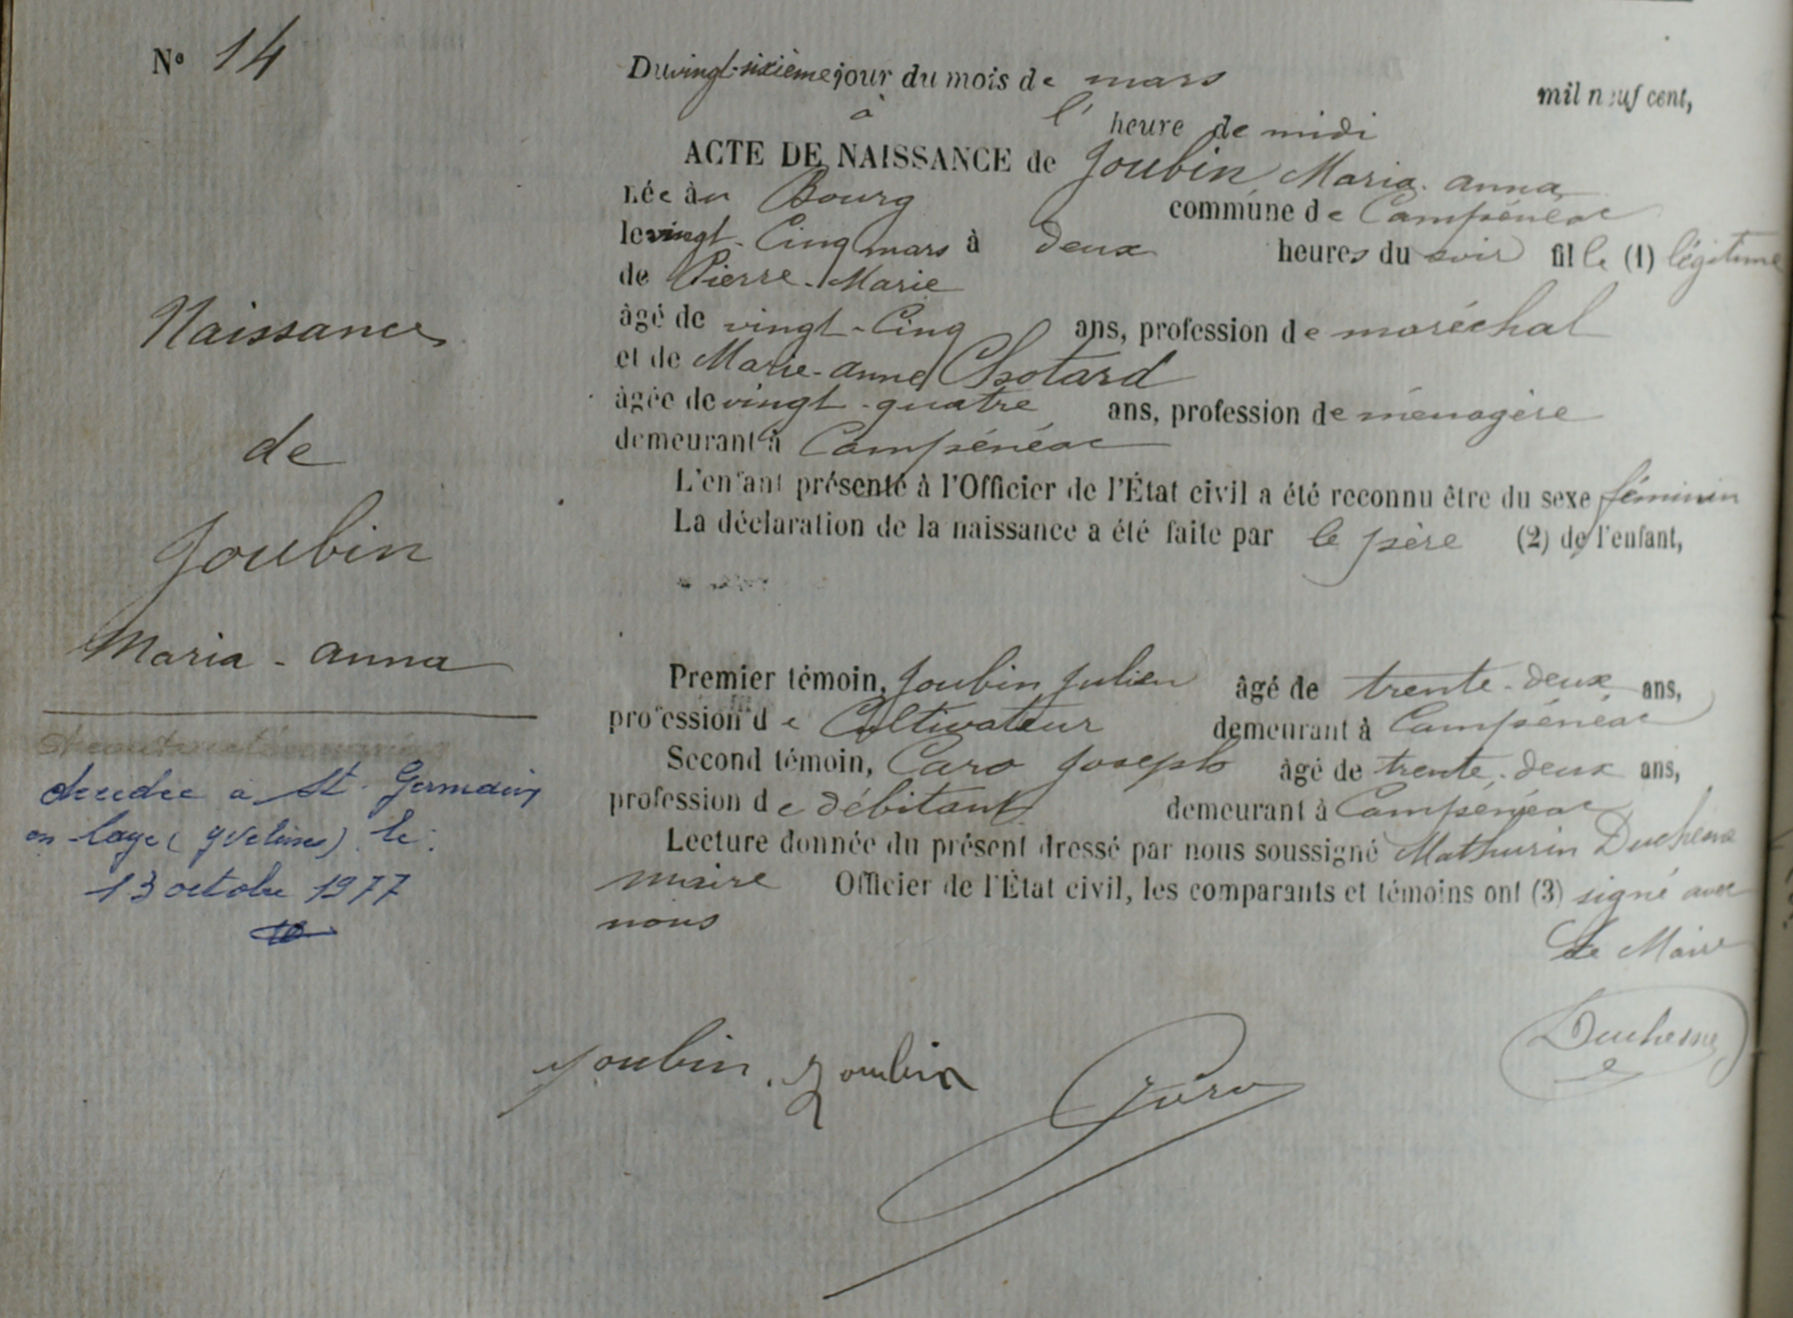 N° 14
Naissance
de
Joubin
Maria - anna
décédée a St Germain
en laye (yvelines) le:
13 octobre 1977
Du vingt-sixième jour du mois de mars mil neuf cent,
à l'heure de midi
ACTE DE NAISSANCE de Joubin Maria anna
née au Bourg commune de Campénéac
le vingt-Cinq mars à deux heures du soir fille (1) légitime
de Pierre-Marie
âgé de vingt-Cinq ans, profession de maréchal
et de Marie-anne Chotard
âgée de vingt-quatre ans, profession de ménagère
demeurant à Campénéac
L'enfant présenté à l'Officier de l'État civil a été reconnu être du sexe féminin
La déclaration de la naissance a été faite par le père (2) de l'enfant,
Premier témoin, Joubin Julien âgé de trente-deux ans,
profession de Cultivateur demeurant à Campénéac
Second témoin, Caro Joseph âgé de trente-deux ans,
profession de débitant demeurant à Campénéac
Lecture donnée du présent dressé par nous soussigné Mathurin Duchesne
maire Officier de l'État civil, les comparants et témoins ont (3) signé avec
nous
Le Maire
Joubin Joubin Caro Duchesne